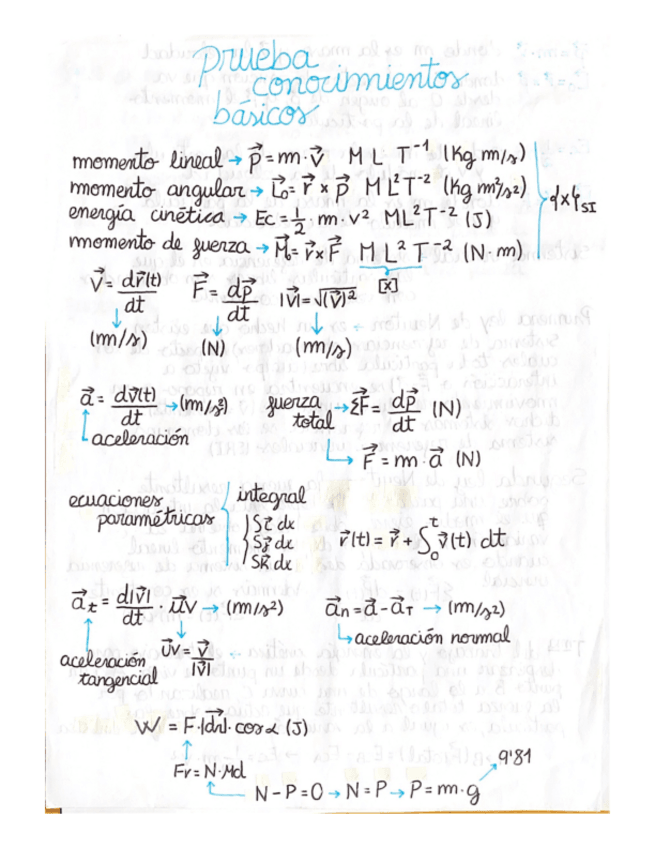 Prueba
conocimientos
básicos
momento lineal → p⃗ = m · v⃗ M L T⁻¹ (Kg m/s)
momento angular → L⃗₀ = r⃗ × p⃗ M L² T⁻² (Kg m²/s²)
energía cinética → Ec = 1/2 · m · v² ML² T⁻² (J)
momento de fuerza → M⃗₀ = r⃗ x F⃗ M L² T⁻² (N · m)
[x]
v⃗ = dr⃗(t)/dt F⃗ = dp⃗/dt |v⃗| = √(v⃗)²
(m/s) (N) (m/s)
a⃗ = dv⃗(t)/dt → (m/s²) fuerza total → ΣF⃗ = dp⃗/dt (N)
aceleración
F⃗ = m · a⃗ (N)
ecuaciones paramétricas
integral
r⃗(t) = r⃗ + ∫₀ᵗ v⃗(t) dt
a⃗t = d|v⃗|/dt · u⃗v → (m/s²) a⃗n = a⃗ - a⃗T → (m/s²)
aceleración tangencial
U⃗v = v⃗/|v⃗|
aceleración normal
(J)
9'81
N - P = 0 → N = P → P = m · g